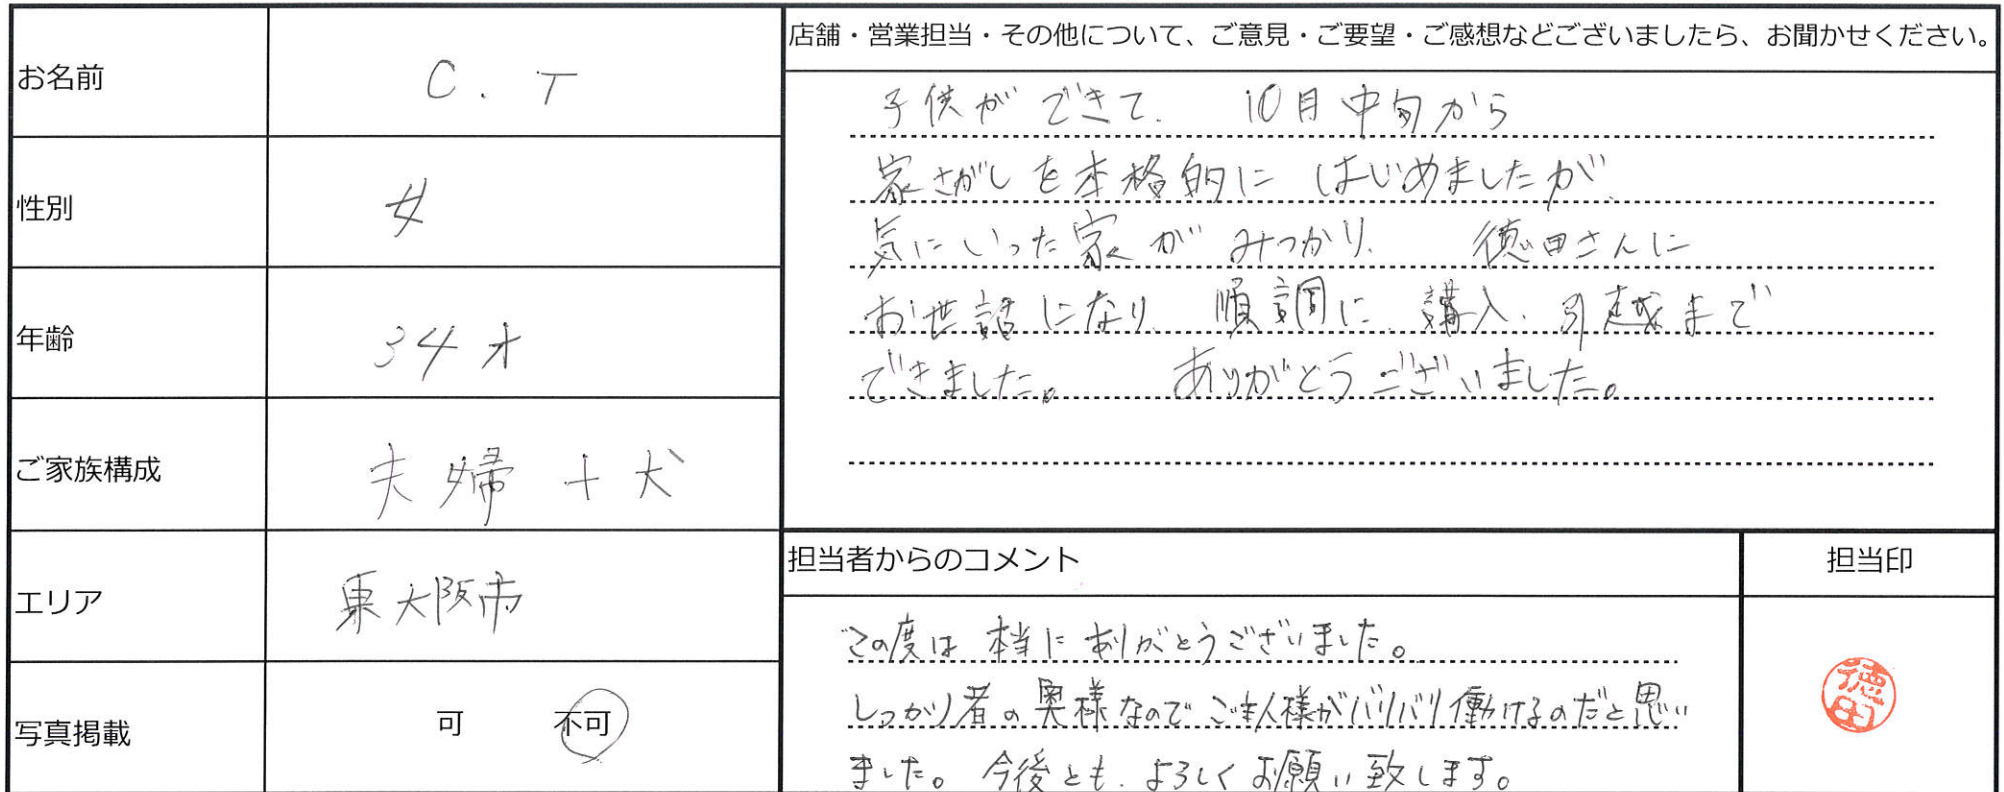 お名前 C. T
性別 女
年齢 34才
ご家族構成 夫婦＋犬
エリア 東大阪市
写真掲載 可 不可
店舗・営業担当・その他について、ご意見・ご要望・ご感想などございましたら、お聞かせください。
子供ができて、 10月中旬から
家さがしを本格的に はじめましたが、
気にいった家が みつかり、 徳田さんに
お世話になり、 順調に、購入、引越まで
できました。 ありがとうございました。
担当者からのコメント
この度は 本当に ありがとうございました。
しっかり者の奥様なので ご主人様がバリバリ働けるのだと思い
ました。 今後とも、よろしくお願い致します。
担当印
徳田